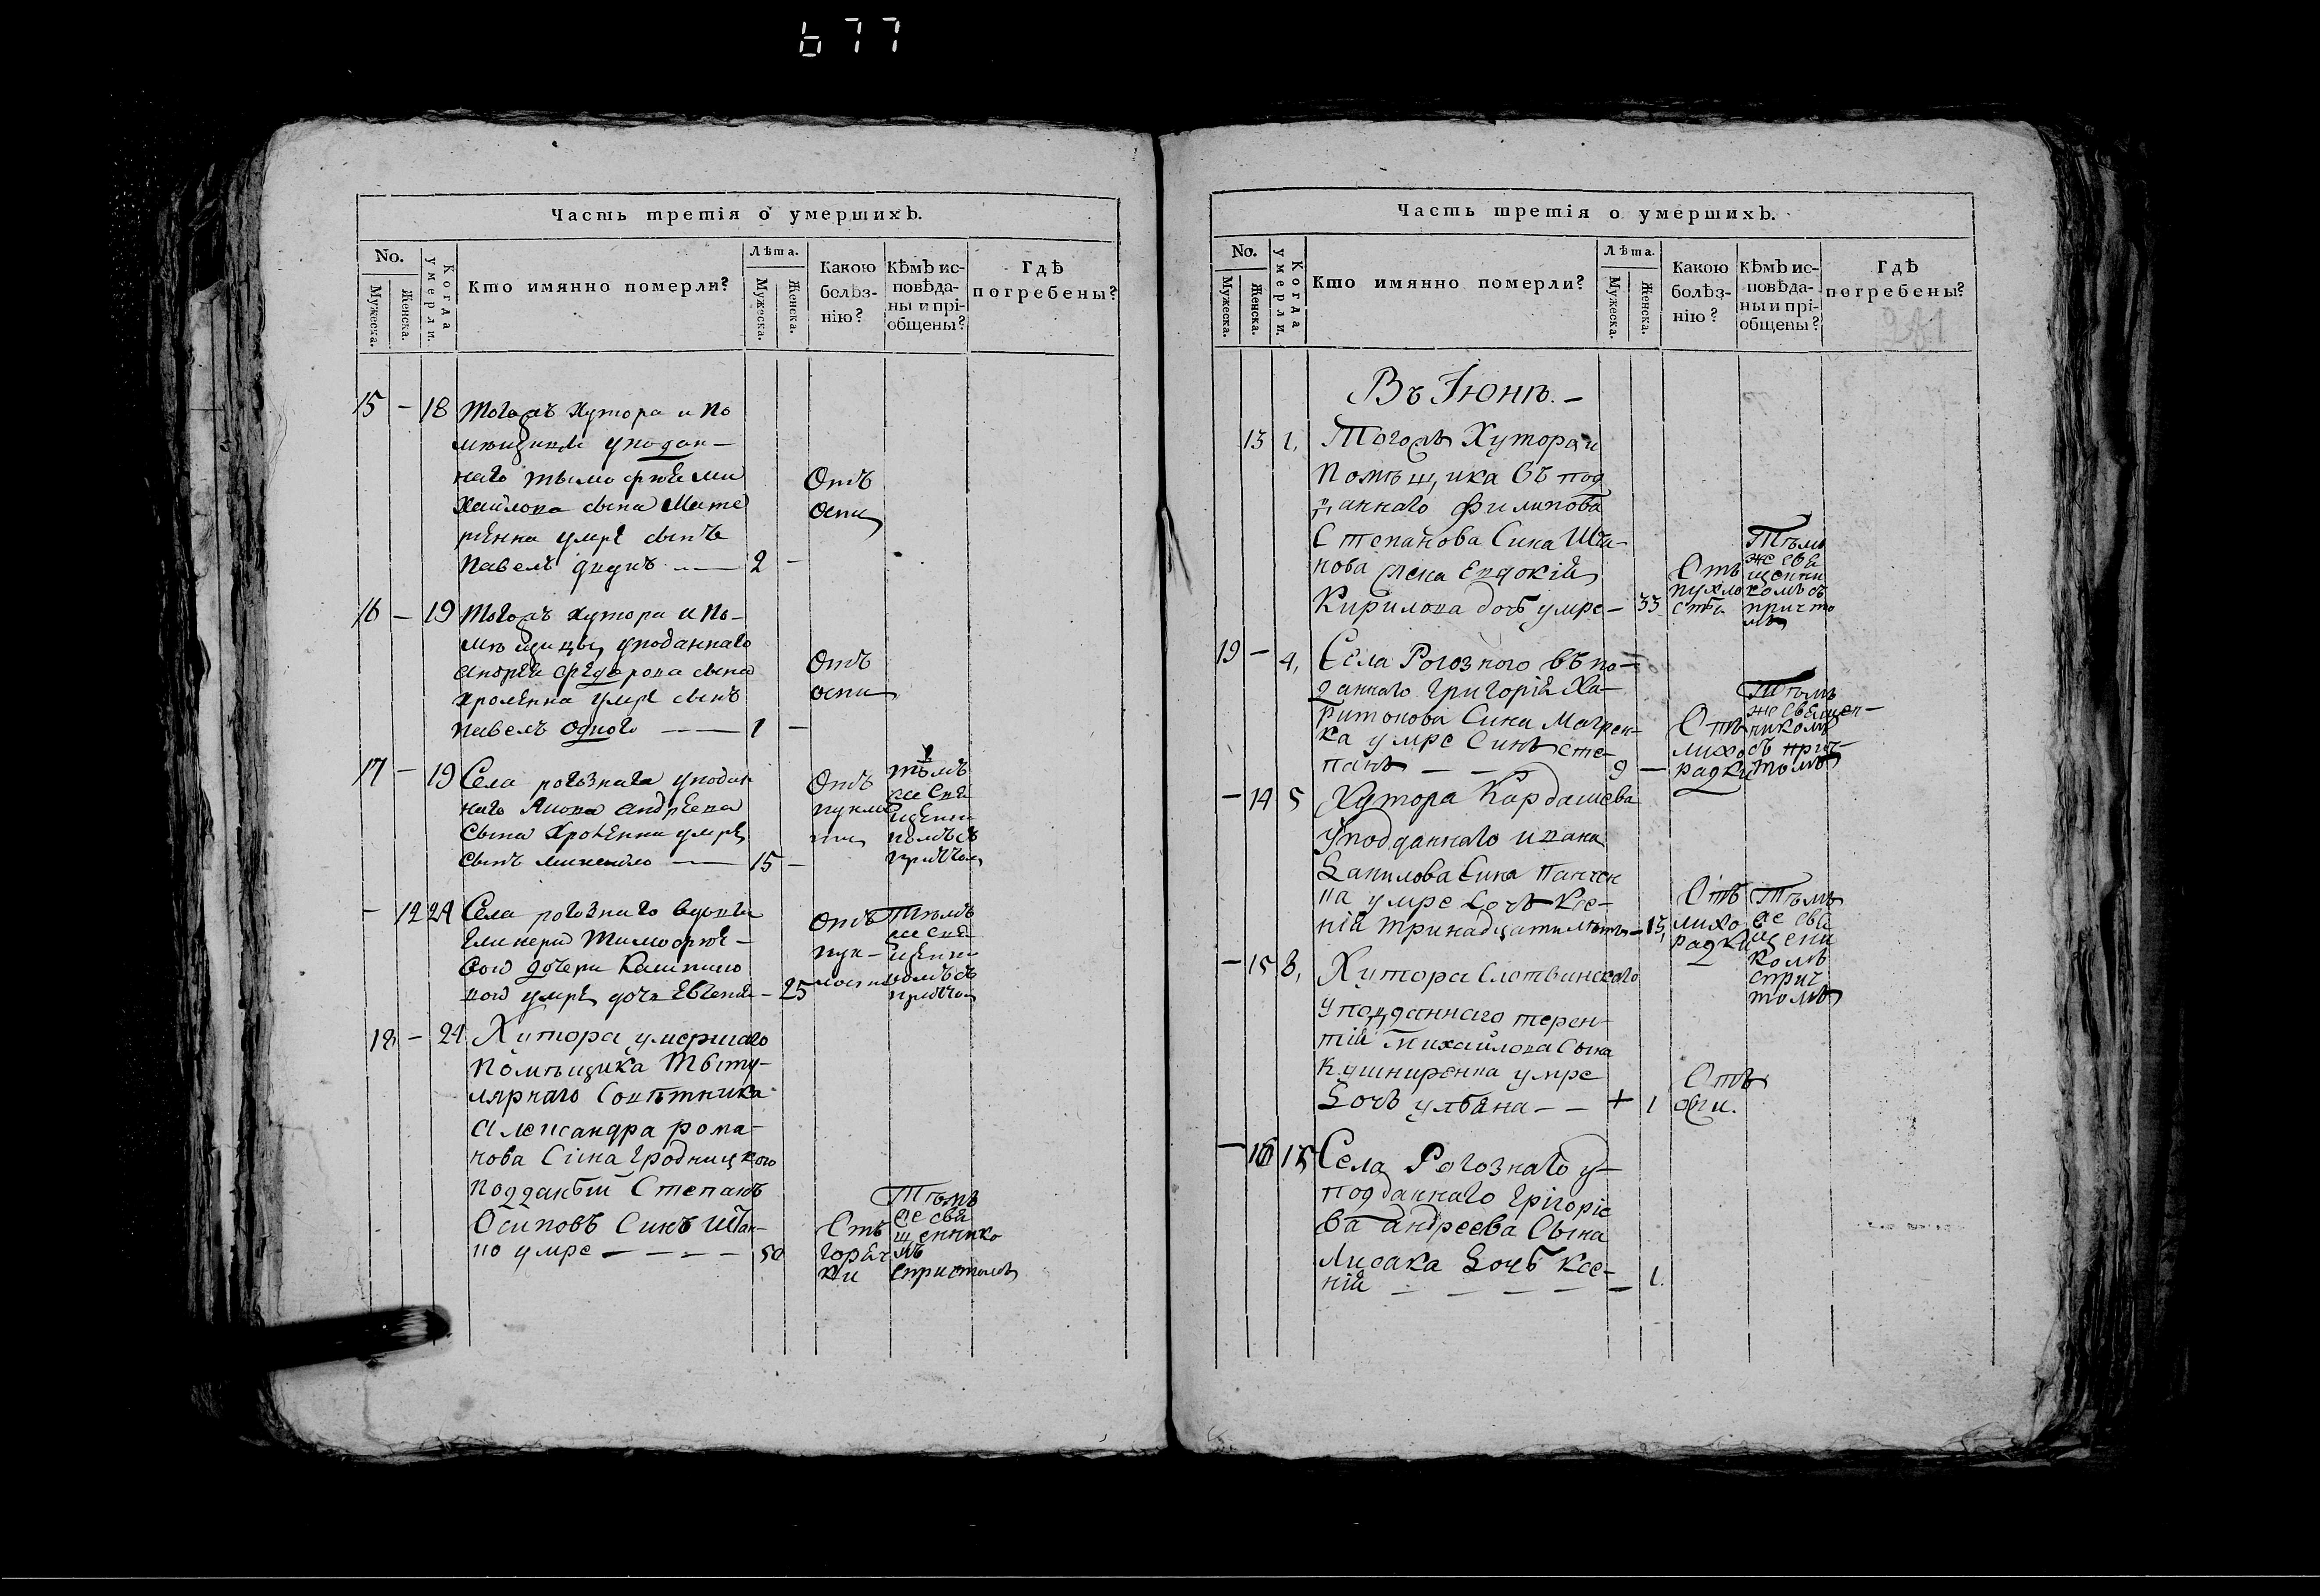 677
Часть третія о умершихЪ.
No.
Мужеска.
Женска.
Когда умерли.
Кто имянно померли?
Лѣта.
Мужеска.
Женска.
Какою болѣзнію?
КѣмЪ исповѣданы и пріобщены?
ГдѣЪ погребены?
15 - 18 Тогожъ Хутора и По
мѣщика уподан-
наго тымофѣя Ми
Хайлова сына Мате
умре сынъ
Павелъ двухъ — 2 -
Отъ
оспи
16 - 19 Тогожъ хутора и По-
мѣщицы уподаннаго
андрея федорова сына
умре сынъ
павелъ одного — 1 -
Отъ
оспи
17 - 19 Села рогознаго уподан
наго Якова андреева
Сына умре
сынъ михайло — 15 -
Отъ
пухло
ти
тѣмъ
же Свя
щенни
комъ съ
причтом
- 12 24 Села рогознаго вдовы
Тимофѣе-
вой дочери
умре дочь Евгенія - 25
Отъ
пух-
лости
Тѣмъ
же Свя
щенни
комъ съ
причтом
18 - 24 Хутора умершаго
Помѣщика Тыту-
лярнаго Совѣтника
Александра рома-
нова Сина Гродницкого
подданый Степанъ
Осиповъ Синъ Шван-
но умре - - - - 50
Отъ
горяч
ки
Тѣмъ
же свя
щеннико
мъ
спричтомъ
Часть третія о умершихЪ.
No.
Мужеска.
Женска.
Когда умерли.
Кто имянно померли?
Лѣта.
Мужеска.
Женска.
Какою болѣзнію?
КѣмЪ исповѣданы и пріобщены?
ГдѣЪ погребены?
Въ Іюнѣ. -
13 1, Тогожъ Хутора и
Помѣщика въ под
данного Филипова
Степанова Сина Шва-
нова жена Евдокія
Кирилова дочъ умре - 33
Отъ
пухло
сты
Тѣмъ
же свя
щенни
комъ съ
причто
мъ
19 - 4, Села Рогозного въ по-
данаго Григорія Ха-
ритонова Сина Матрен-
ка умре Синъ Сте-
панъ - - - 9 -
Отъ
лихо
радки
Тѣмъ
же священ-
никомъ
съ прич-
томъ
- 14 5 Хутора Кардашева
уподданнаго ивана
Данилова Сина Панчен
ка умре дочъ Ксе-
нія тринадцати лѣтъ - 13,
Отъ
лихо
радки
Тѣмъ
же свя
щени
комъ
сприч
томъ
- 15 8, Хутора Слотвинскаго
уподданнаго терен-
тій Михайлова Сына
Кушниренка умре
Дочъ улбяна - - + 1
Отъ
оспи.
- 16 15 Села Рогознаго у-
подданнаго Грігоріе
ва Андреева Сына
Лисака Дочъ Ксе-
нія - - - - - 1.